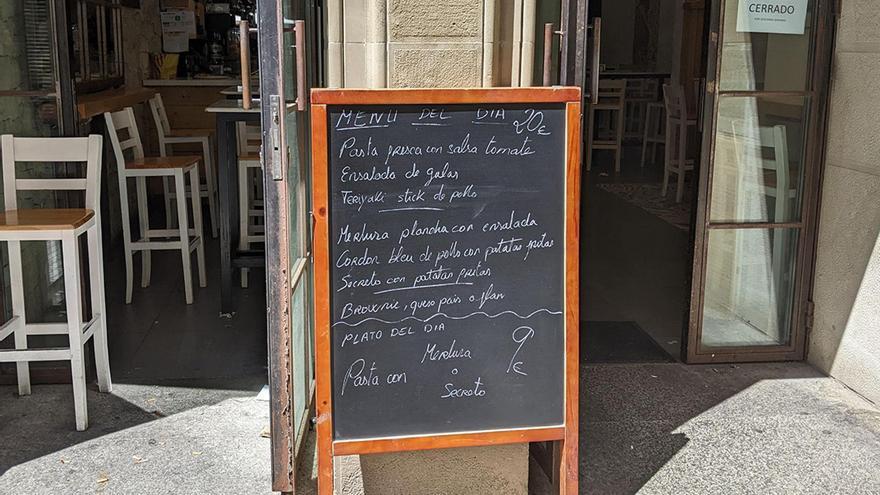 CERRADO
MENU DEL DIA 20€
Pasta fresca con salsa tomate
Ensalada de galas
Teriyaki stick de pollo
Merluza plancha con ensalada
Cordon bleu de pollo con patatas fritas
Secreto con patatas fritas
BROWNIE, queso pais o flan
PLATO DEL DIA 9€
Merluza
Pasta con o
Secreto